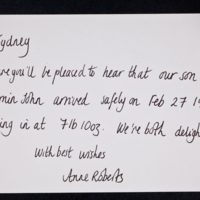 ydney
you'll be pleased to hear that our son
min John arrived safely on Feb 27 19
ing in at 7lb 10oz. We're both deligh
With best wishes
Anne Roberts